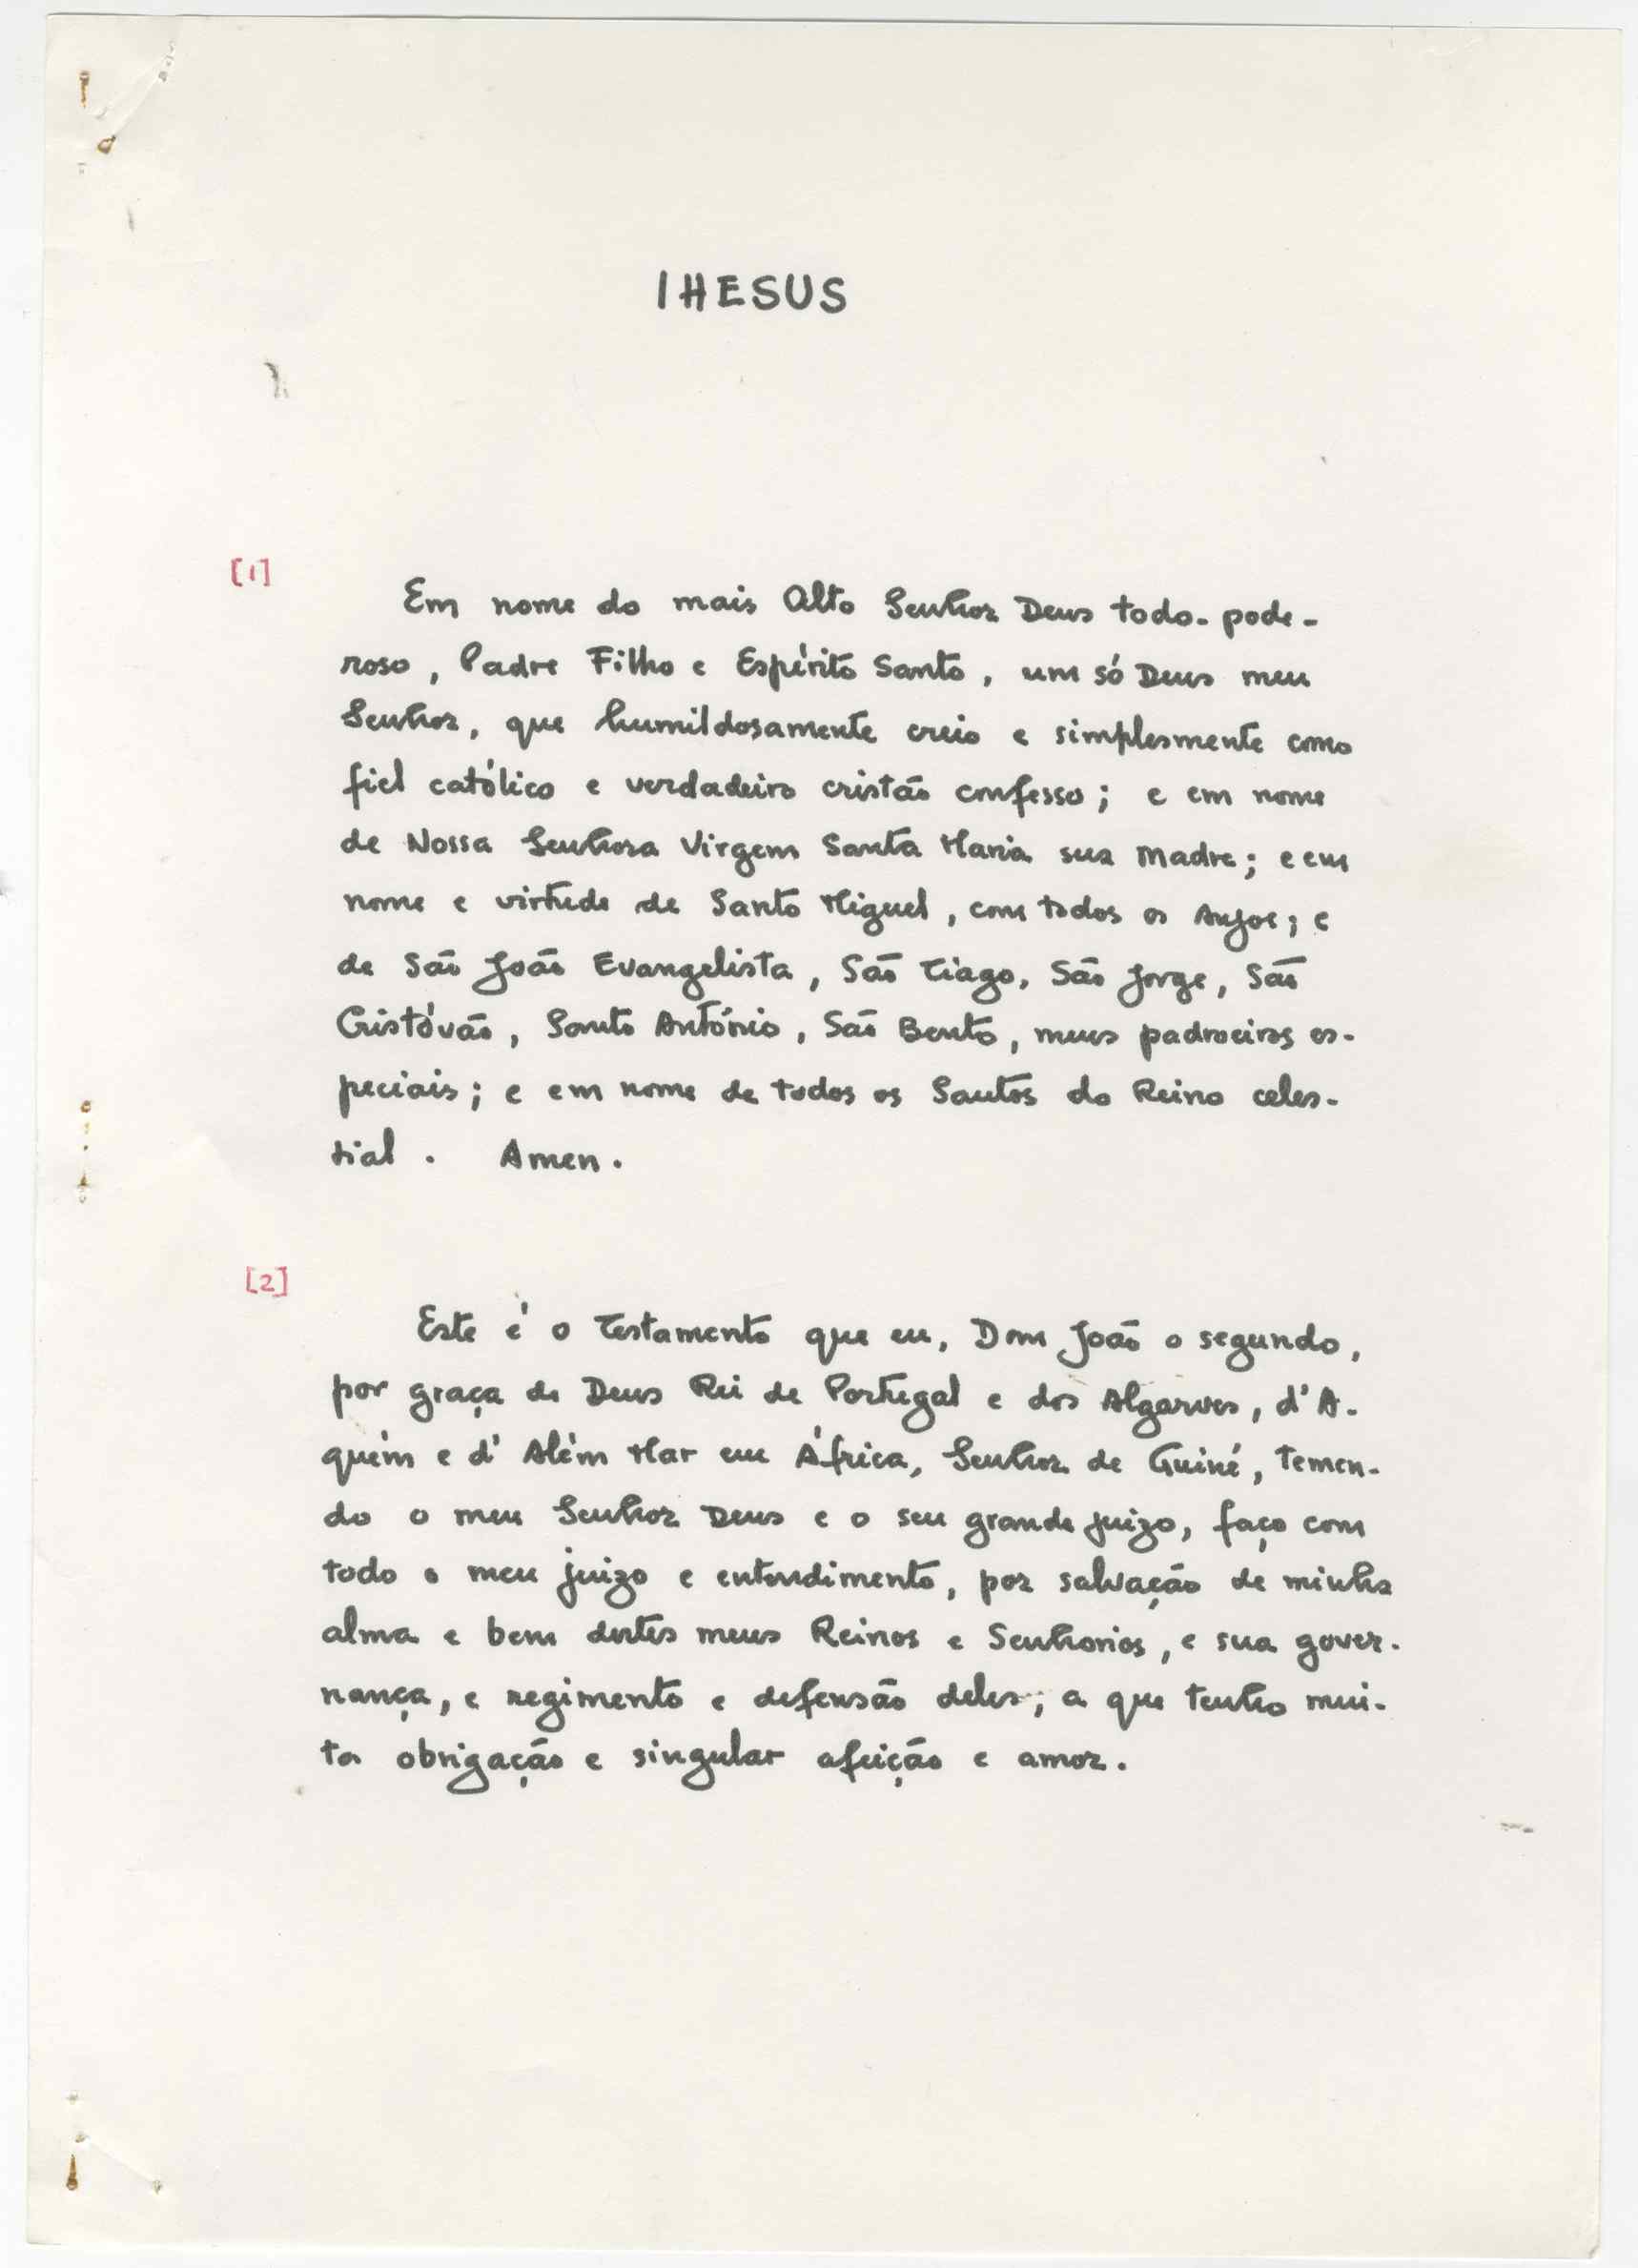 IHESUS
[1]
Em nome do mais Alto Senhor Deus todo-pode-
roso, Padre Filho e Espírito Santo, um só Deus meu
Senhor, que humildosamente creio e simplesmente como
fiel católico e verdadeiro cristão confesso; e em nome
de Nossa Senhora Virgem Santa Maria sua Madre; e em
nome e virtude de Santo Miguel, com todos os Anjos; e
de São João Evangelista, São Tiago, São Jorge, São
Cristóvão, Santo António, São Bento, meus padroeiros es-
peciais; e em nome de todos os Santos do Reino celes-
tial. Amen.
[2]
Este é o Testamento que eu, Dom João o segundo,
por graça de Deus Rei de Portugal e dos Algarves, d'A-
quém e d'Além Mar em África, Senhor de Guiné, temen-
do o meu Senhor Deus e o seu grande juizo, faço com
todo o meu juizo e entendimento, por salvação de minha
alma e bem destes meus Reinos e Senhorios, e sua gover-
nança, e regimento e defensão deles, a que tenho mui-
ta obrigação e singular afeição e amor.